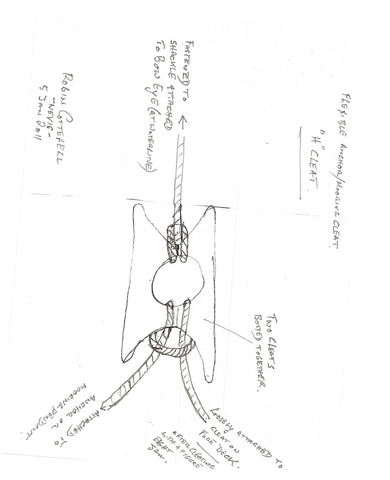 FLEXIBLE ANCHOR/MOORING CLEAT.
"H" CLEAT.
FASTENED TO
SHACKLE ATTACHED
TO BOW EYE (AT WATERLINE)
ROBIN COTTERELL
- NEVIS -
5 JAN 2011
TWO CLEATS
BOLTED TOGETHER.
LOOSELY ATTACHED TO
CLEAT ON
FORE DECK.
AFTER CLEATING
WITH A FIGURE
EIGHT
ATTACHED TO
ANCHOR OR
MOORING PENDANT.